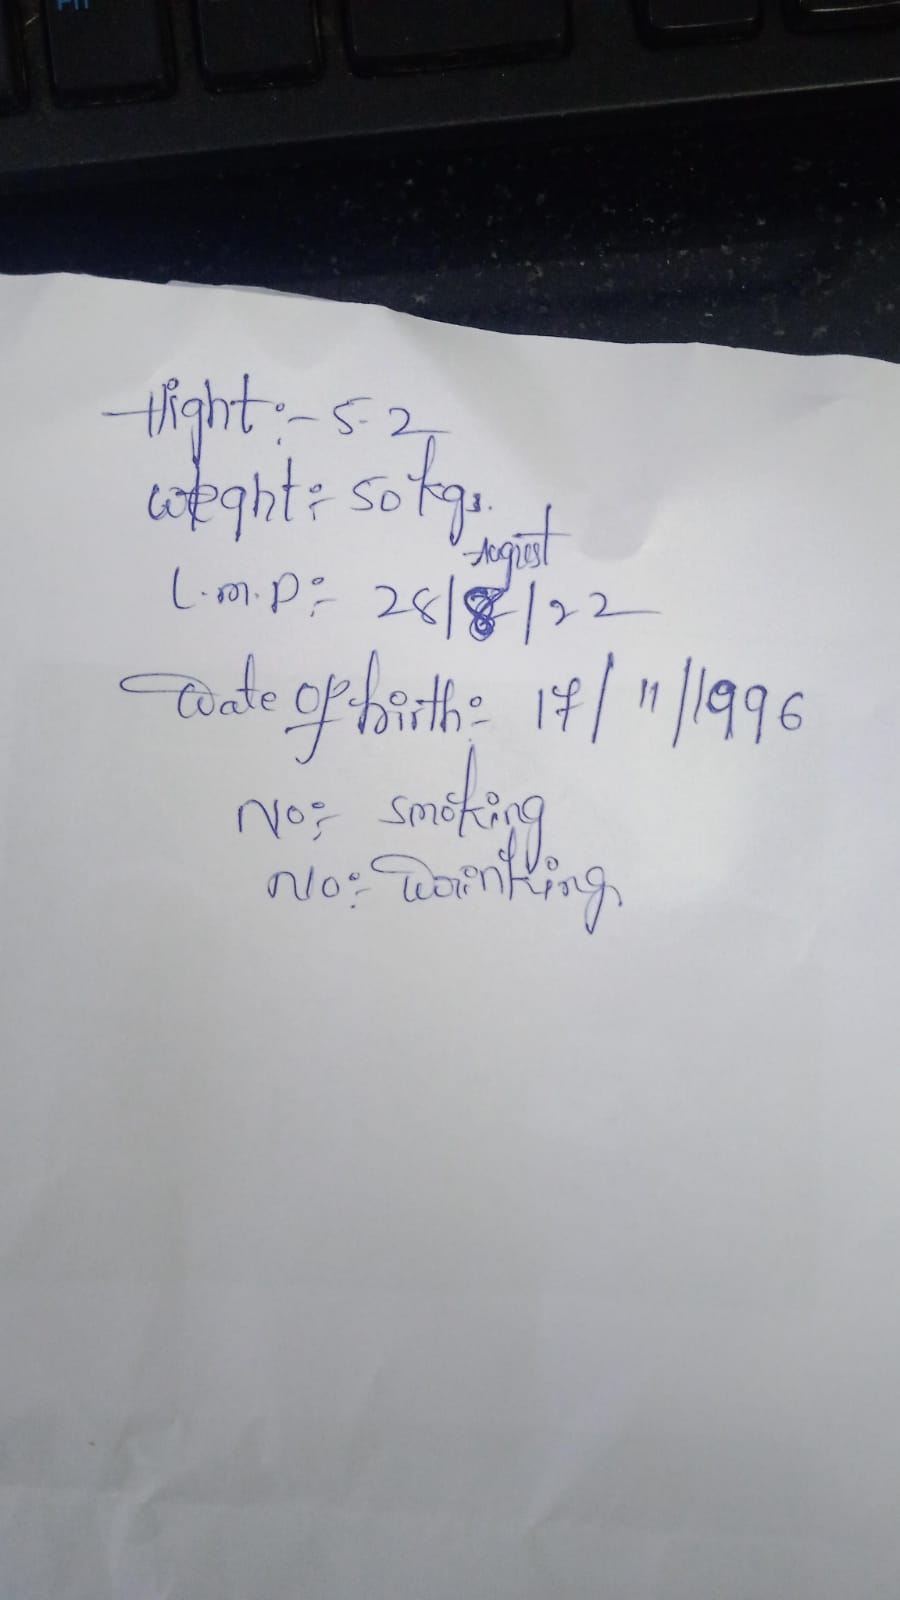 Fn
Hight:- 5-2
Weight:- 50 kgs.
August
L.M.P:- 28/8/22
Date of birth:- 17/11/1996
No:- smoking
No:- Drinking